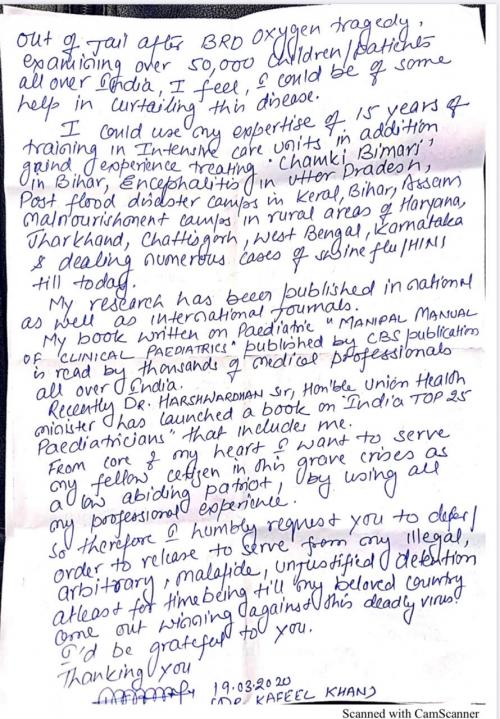 out of Jail after BRD Oxygen tragedy,
examining over 50,000 children/patients
all over India, I feel, I could be of some
help in curtailing this disease.
I could use my expertise of 15 years of
training in Intensive care units in addition
gaind experience treating "Chamki Bimari",
in Bihar, Encephalitis in Utter Pradesh,
Post flood disaster camps in Keral, Bihar, Assam
malnourishment camps in rural areas of Haryana,
Jharkhand, Chattisgarh, West Bengal, Karnataka
& dealing numerous cases of swine flu/H1N1
till today.
My research has been published in national
as well as international Journals.
My book written on Paediatric "MANIPAL MANUAL
OF CLINICAL PAEDIATRICS" published by CBS publication
is read by thousands of medical professionals
all over India.
Recently DR. HARSHWARDHAN Sir, Hon'ble Union Health
minister has launched a book on "India TOP 25
Paediatricians" that includes me.
From core of my heart I want to serve
my fellow citizen in this grave crises as
a law abiding patriot, by using all
my professional experience.
So therefore I humbly request you to defer/
order to release to serve from my illegal,
arbitrary, malafide, unjustified detention
atleast for time being till my beloved country
come out winning against this deadly virus.
I'd be grateful to you.
Thanking you
19.03.2020
(DR KAFEEL KHAN)
Scanned with CamScanner